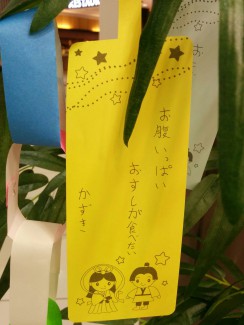 お腹いっぱい
おすしが食べたい
かずき